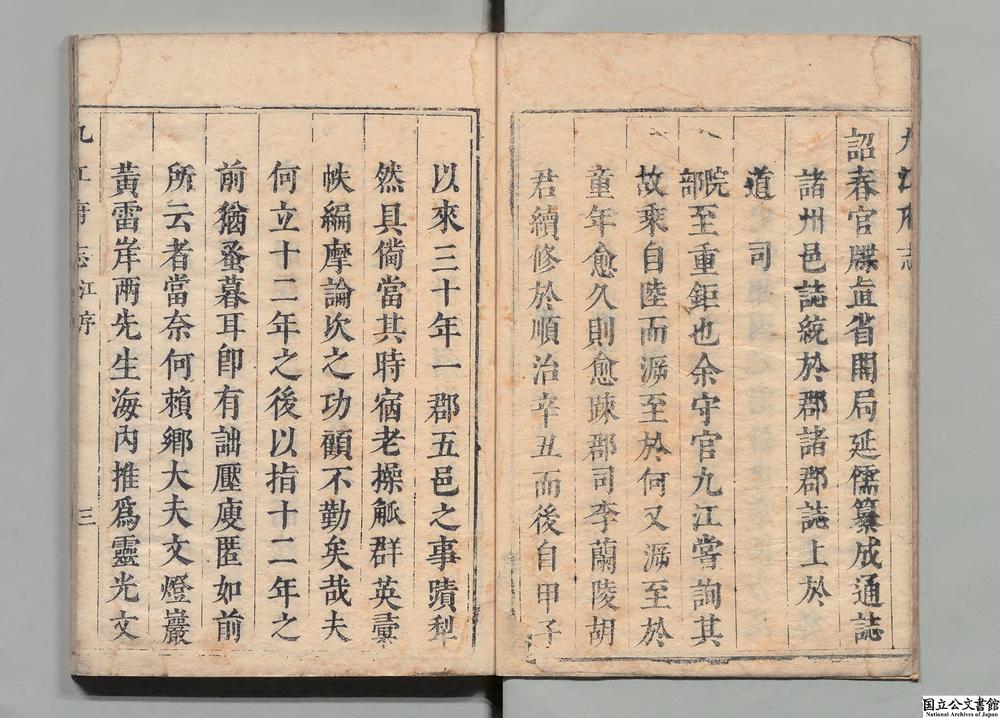 詔春官牒直省開局延儒纂成通誌
諸州邑誌統於郡諸郡誌上於
道司
院
部至重鉅也余守官九江嘗詢其
故乘自陸而泝至於何又泝至於
童年愈久則愈踈郡司李蘭陵胡
君續修於順治辛丑而後自甲子
以來三十年一郡五邑之事蹟犁
然具僃當其時宿老操觚群英彚
帙編摩論次之功顧不勤矣哉夫
何立十二年之後以指十二年之
前猶蚤暮耳卽有詘壓廋匿如前
所云者當奈何賴鄉大夫文燈巖
黃雷岸兩先生海內推爲靈光文
九江府志 江序 三
国立公文書館
National Archives of Japan